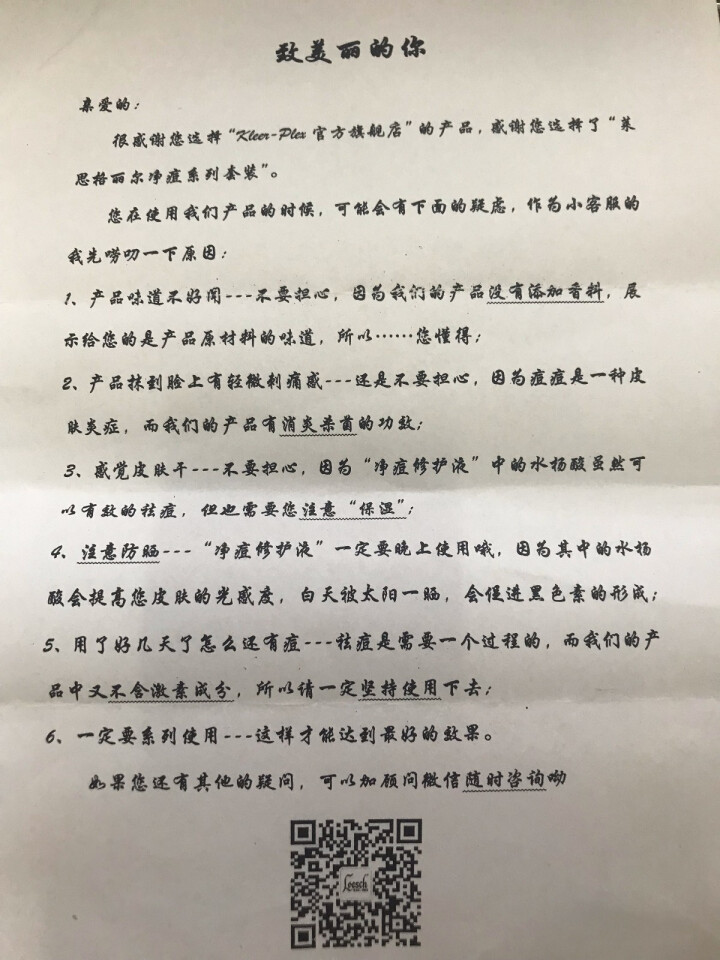 致美丽的你
亲爱的：
很感谢您选择“Kleer-Plex 官方旗舰店”的产品，感谢您选择了“莱
思格丽尔净痘系列套装”。
您在使用我们产品的时候，可能会有下面的疑虑，作为小客服的
我先唠叨一下原因：
1、产品味道不好闻---不要担心，因为我们的产品没有添加香料，展
示给您的是产品原材料的味道，所以……您懂得；
2、产品抹到脸上有轻微刺痛感---还是不要担心，因为痘痘是一种皮
肤炎症，而我们的产品有消炎杀菌的功效；
3、感觉皮肤干---不要担心，因为“净痘修护液”中的水杨酸虽然可
以有效的祛痘，但也需要您注意“保湿”；
4、注意防晒---“净痘修护液”一定要晚上使用哦，因为其中的水杨
酸会提高您皮肤的光感度，白天被太阳一晒，会促进黑色素的形成；
5、用了好几天了怎么还有痘---祛痘是需要一个过程的，而我们的产
品中又不含激素成分，所以请一定坚持使用下去；
6、一定要系列使用---这样才能达到最好的效果。
如果您还有其他的疑问，可以加顾问微信随时咨询呦